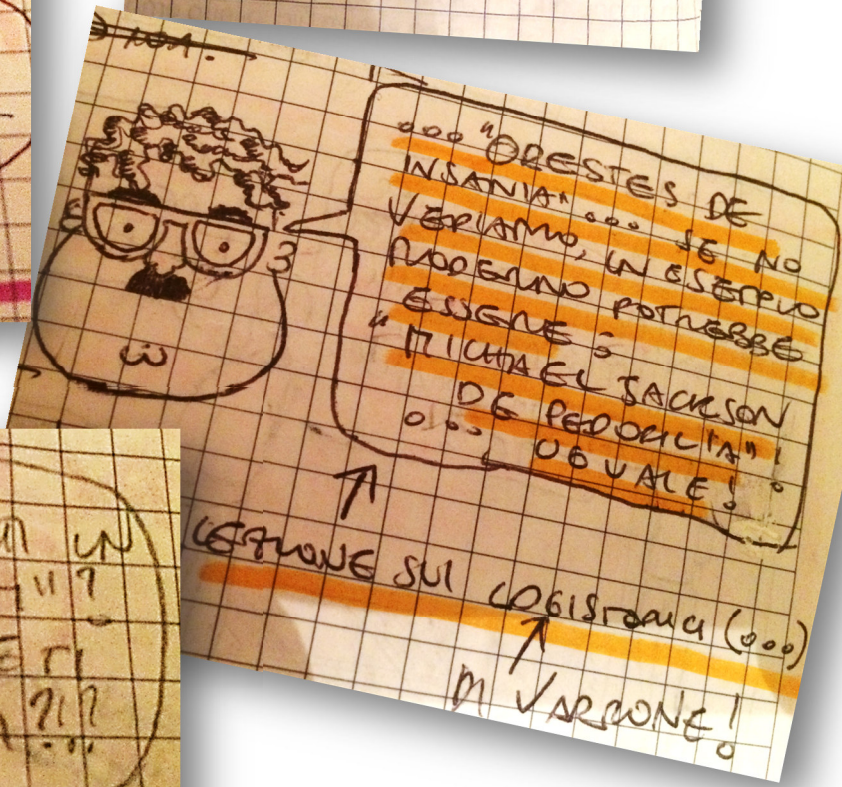 ... "ORESTES DE
INSANIA" ... SE NO
VEDIAMO, UN ESEMPIO
MODERNO POTREBBE
ESSERE :
"MICHAEL JACKSON
DE PEDOFILIA"!
... UGUALE!
LEZIONE SUI LOGISTORICI (...)
DI VARRONE!
UN
?!?